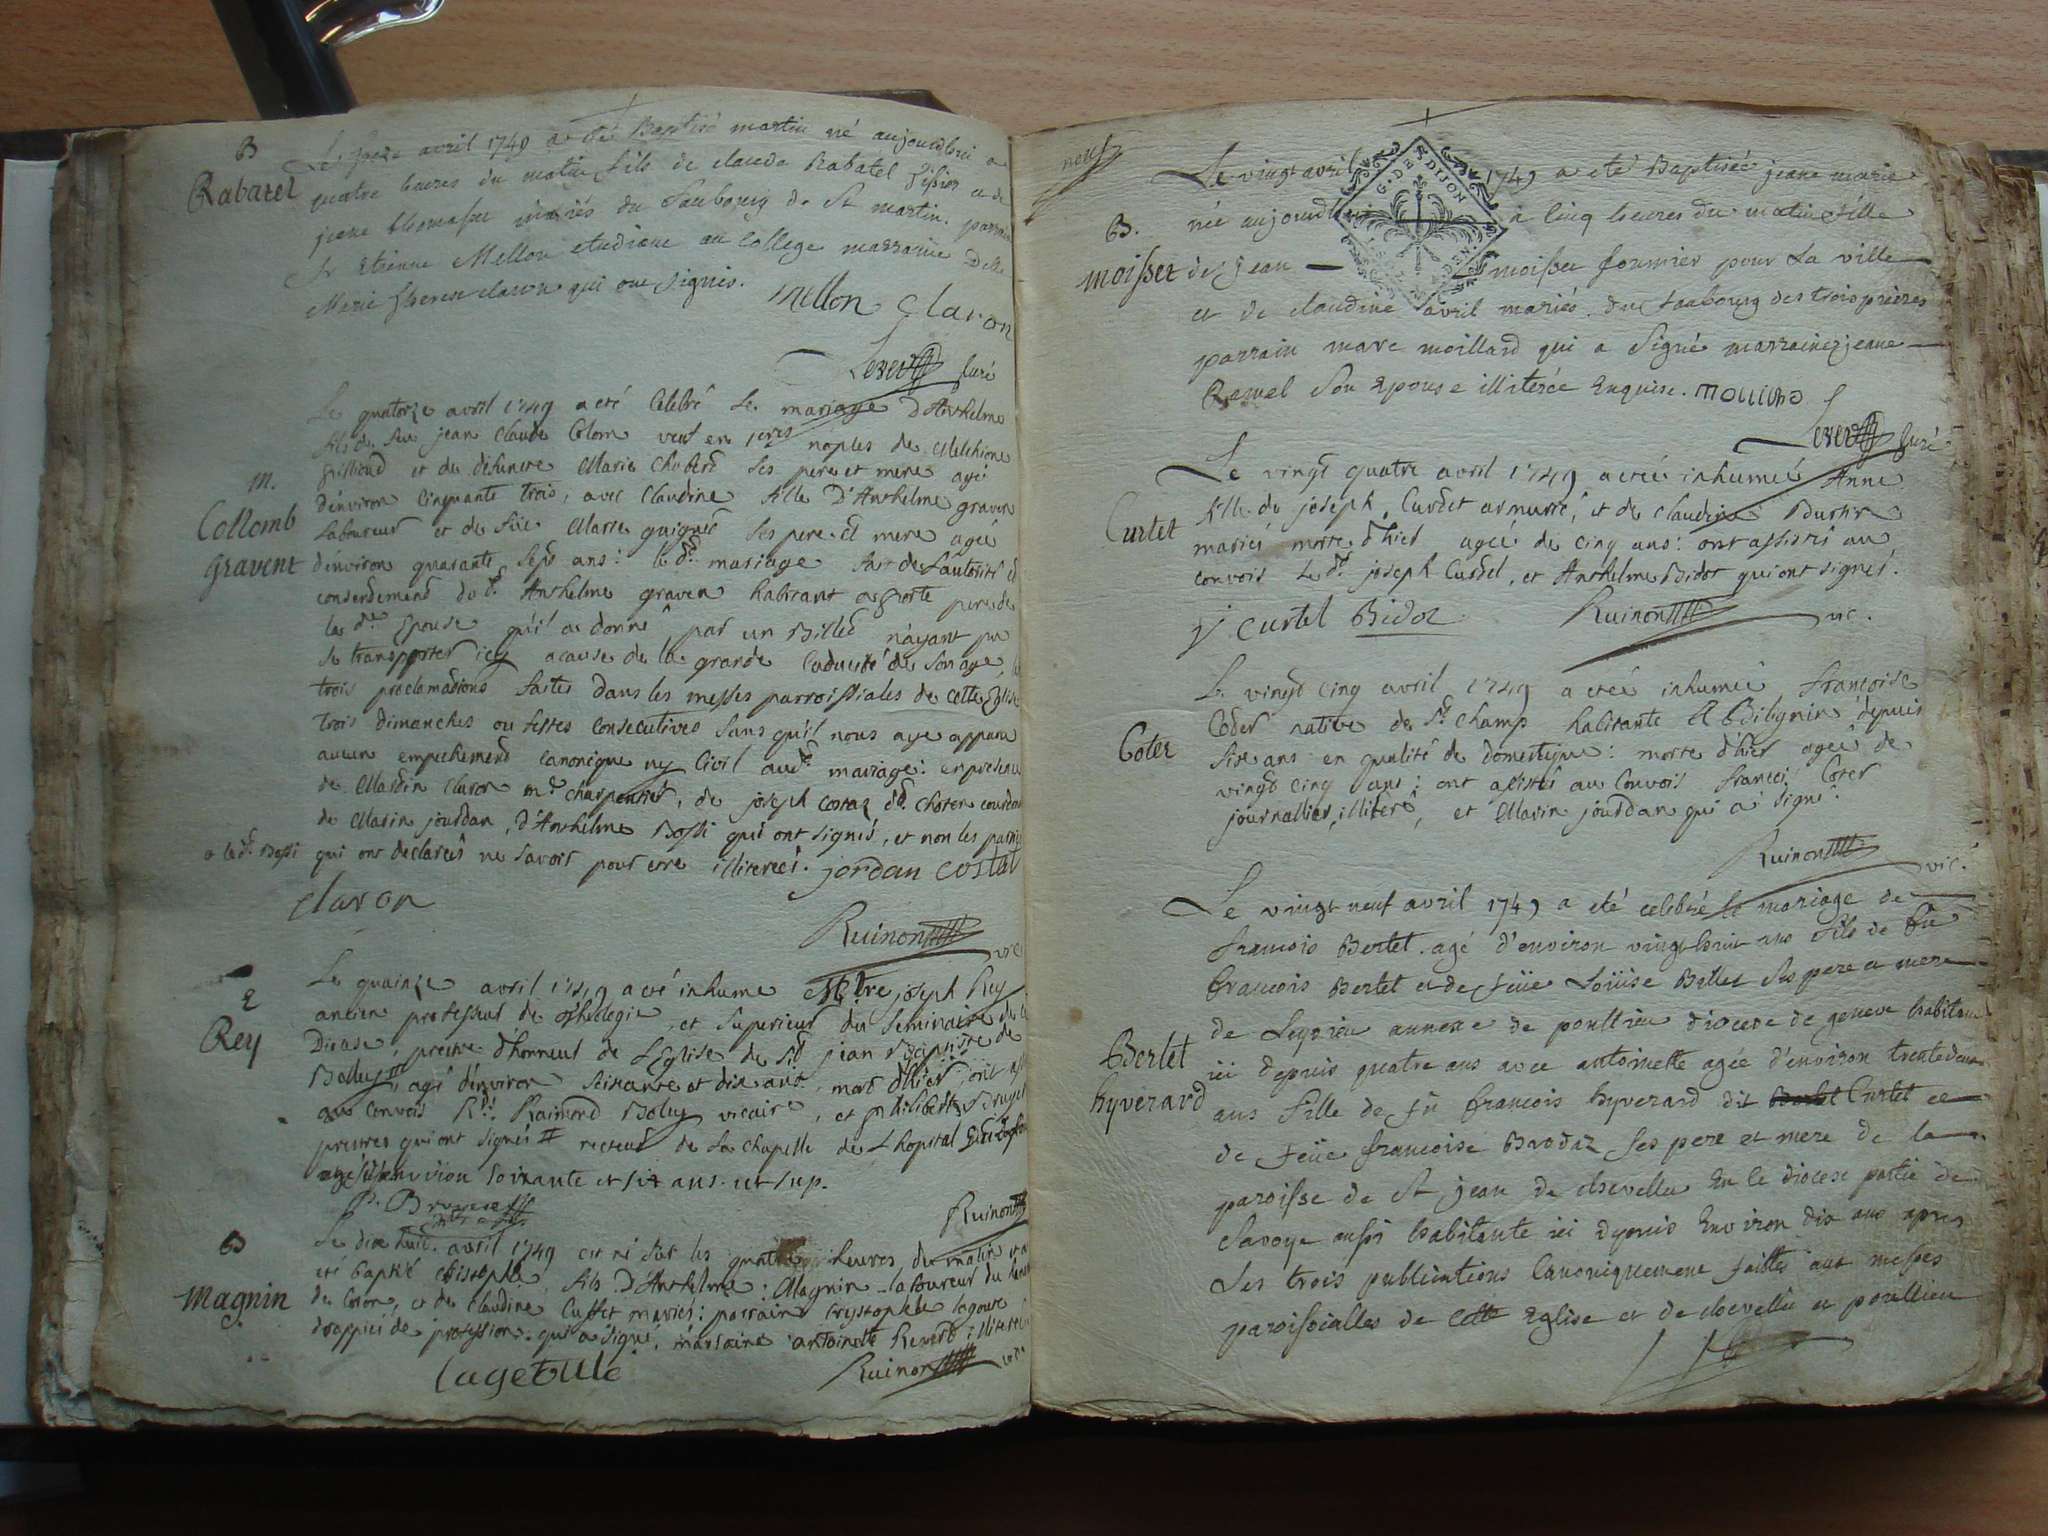 B
Rabatel
Le treze avril 1749 a été Baptisé martin né aujourdhui a
quatre heures du matin fils de claude Rabatel et de
jeane thomasset mariés du faubourg de St martin. parrain
Sr Etienne Mellon etudiant au College marraine Dlle
Marie therese claron qui ont signés.
mellon claron
curé
m.
Collomb
gravent
Le quatorze avril 1749 a eté Celebré le mariage D'Anthelme
fils de feu jean Claude Colom veuf en noples de Melchione
grilliond et de defuncte Marie Chobert ses pere et mere agé
d'environ Cinquante trois, avec Claudine fille D'Anthelme graven
Laboureur et de füe Marie guigue ses pere et mere agée
d'environ quarante sept ans: led. mariage fait de l'autorité et
consendement dud. Anthelme graven habitant a pere de
lad. Epouse qu'il a donné par un Billed n'ayant pu
se transporter icy acause de la grande Caducité de son age,
trois proclamations faites dans les messes parroissiales de cette Eglise
trois dimanches ou festes Consecutives sans qu'il nous aye apparu
aucun empechement canonique ny Civil aud. mariage: en presence
de Mardin claron md. charpentier, de joseph costaz
de Marin jourdan, d'Anthelme Bossi qui ont signés, et non les parties
o led. Bossi qui ont declarés ne savoir pour etre illiterés. jordan costaz
claron
Ruinon vic
E
Rey
Le quainze avril 1749 a eté inhumé joseph Rey
ancien professeur de theologie, et superieur du seminaire
Diocese, prestre d'honneur de L'Eglise de St jean Baptiste de
Belley, agé d'environ seixante et dix ans, mort d'hier, ont
au convois Rd. Raimond Boley vicaire, et philibert Bruyet
prestres qui ont signés II recteur de la chapelle de L'hopital
agé d'environ soixante et six ans. ut sup.
P. Bruyere
Ruinon
B
magnin
Le dix huit avril 1749 est né sur les quatre heures du matin et a
eté baptisé christophle fils D'Anthelme Magnin laboureur du
de Coron, et de Claudine Cuffet mariés: parrain Crystophle lagoute
drappier de profession qui a signé, marraine antoinette Reverd illiterée
lagetule
Ruinon vic
neuf
B.
moisset
Le vingt avril 1749 a eté Baptisée jeane marie
née aujourdhui a Cinq heures du matin fille
de jean moisset fournier pour la ville
et de claudine avril mariés du faubourg des trois prieres
parrain marc moillard qui a signé marraine jeane
Ramel son Epouse illiterée Enquise.
G. DE DIJON
curé
Curtet
Le vingt quatre avril 1749 a eté inhumée Anne
fille de joseph Curdet armurié, et de claudine
mariés morte d'hier agée de cinq ans: ont assistés au
convois led. joseph Curdet, et Anthelme Bidot qui ont signés.
J Curtet Bidoz
Ruinon vic.
Coter
Le vingt cinq avril 1749 a eté inhumée Françoise
Coder native de St champ habitante A Bibynin depuis
six ans en qualité de domestique: morte d'hier agée de
vingt cinq ans; ont assistés au Convois françois Coter
journallier, illiteré, et Marin jourdan qui a signé.
Ruinon vic.
Bertet
hyverard
Le vingt neuf avril 1749 a été celebré le mariage de
francois Bertet agé d'environ vingt huit ans fils de fû
francois Bertet et de feüe Loüise Billet ses pere et mere
de Leyrieu annexe de poullieu diocese de geneve habitant
ici depuis quatre ans avec antoinette agée d'environ trente deux
ans fille de fû francois hyverard dit Curtet et
de feüe francoise Brodaz ses pere et mere de la
paroisse de St jean de chevellu En le diocese partie de
Savoye aussi habitante ici depuis Environ dix ans apres
Les trois publications Canoniquement faittes aux messes
paroissialles de cette Eglise et de chevellu et poullieu